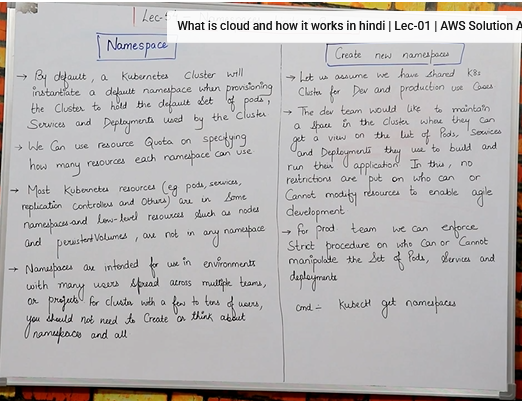 Lec-
What is cloud and how it works in hindi | Lec-01 | AWS Solution A
Namespace
→ By default, a Kubernetes Cluster will
instantiate a default namespace when provisioning
the Cluster to hold the default Set of pods,
Services and Deployments used by the Cluster
→ We Can use resource Quota on specifying
how many resources each namespace can use
→ Most Kubernetes resources (eg pods, services,
replication Controllers and Others) are in Some
namespaces and low-level resources Such as nodes
and persistentVolumes, are not in any namespace
→ Namespaces are intended for use in environments
with many users Spread across multiple teams,
or projects, For cluster with a few to tens of users,
you should not need to Create or think about
namespaces and all
Create new namespaces
→ Let us assume we have shared K8s
Cluster for Dev and production use Cases
→ The dev team would like to maintain
a Space in the cluster where they can
get a view on the list of Pods, Services
and Deployments they use to build and
run their application In this, no
restrictions are put on who can or
Cannot modify resources to enable agile
development
→ For prod team we can enforce
Strict procedure on who Can or Cannot
manipulate the Set of Pods, Services and
deployments
cmd = Kubectl get namespaces